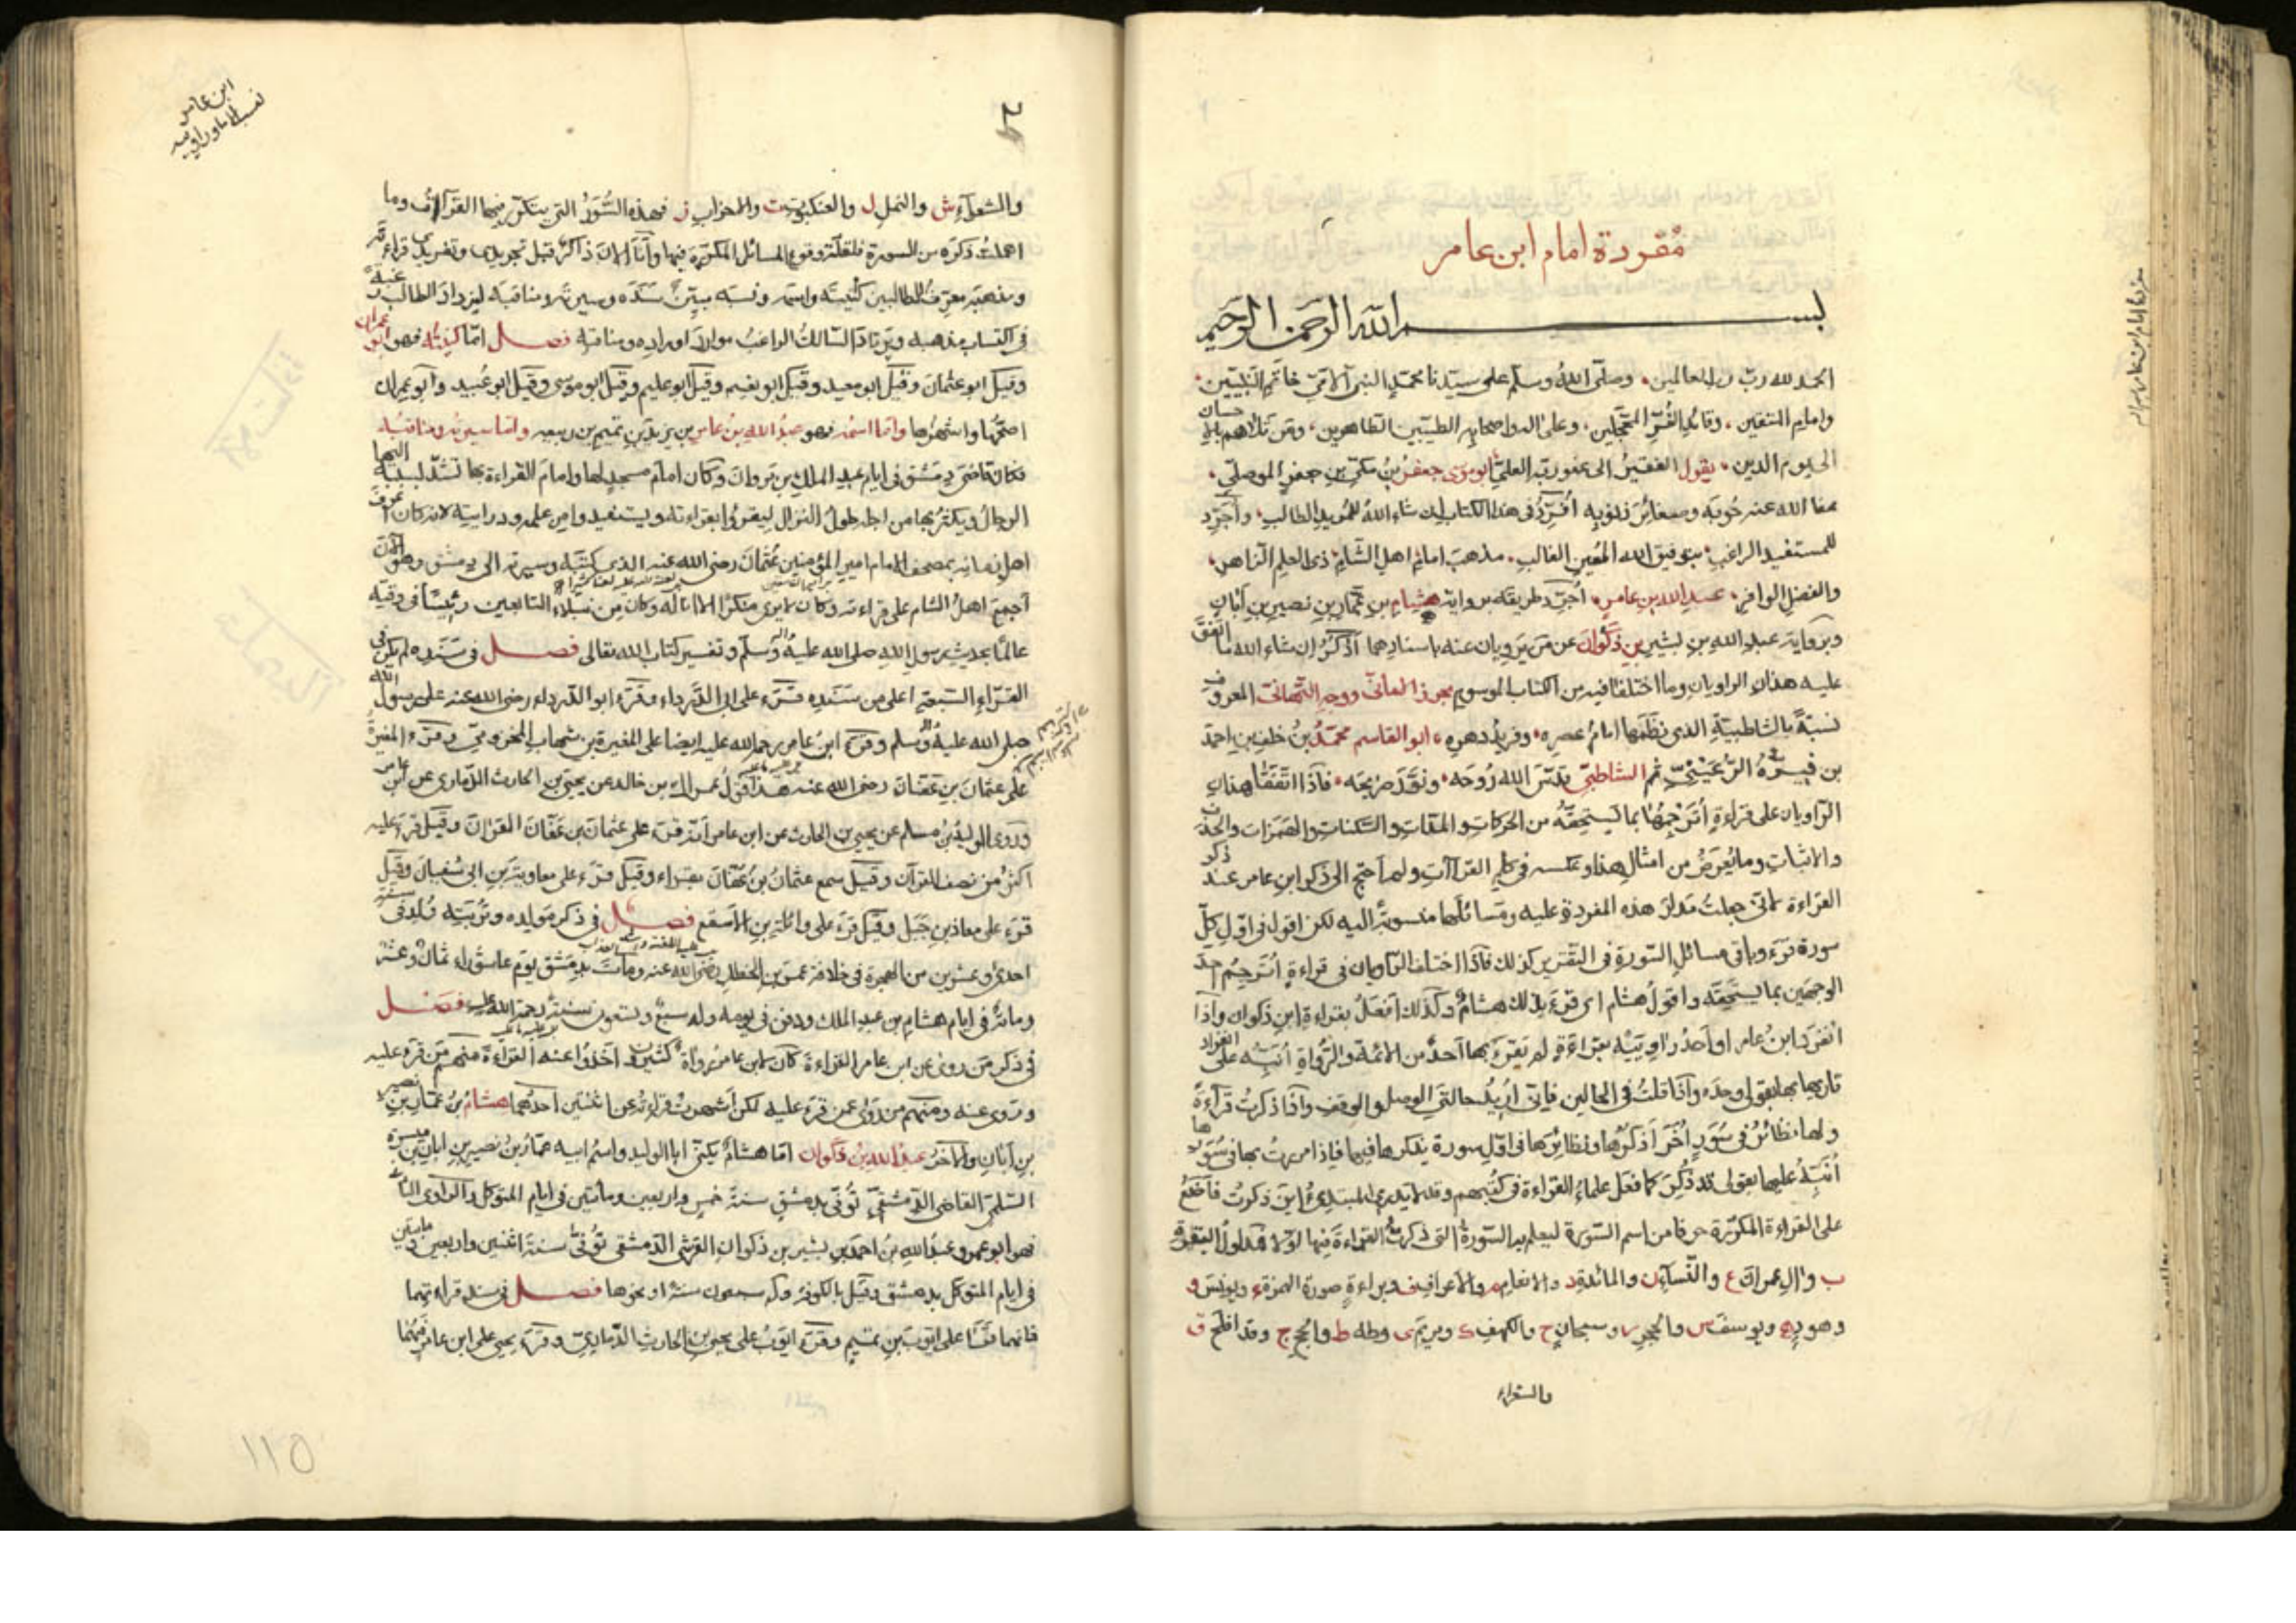 مفردة امام ابن عامر
بسم الله الرحمن الرحيم
الحمد لله رب العالمين، وصلى الله وسلم على سيدنا محمد النبي الامي خاتم النبيين،
وامام المتقين، وقائد الغر المحجلين، وعلى اله واصحابه الطيبين الطاهرين، ومن تلاهم باحسان
الى يوم الدين، يقول الفقير الى عفو ربه العلي ابو موسى جعفر بن مكي بن جعفر الموصلي،
عفا الله عنه حوبه وصغائر ذنوبه افرد في هذا الكتاب ان شاء الله للمريد الطالب، واجرد
للمستفيد الراغب، بتوفيق الله المعين الغالب، مذهب امام اهل الشام ذي العلم الزاهر،
والفضل الوافر، عبد الله بن عامر، اجرد طريقه برواية هشام بن عمار بن نصير بن ابان
وبرواية عبد الله بن بشير بن ذكوان عن من يرويان عنه باسنادهما اذكر ان شاء الله ما اتفق
عليه هذان الراويان وما اختلفا فيه من الكتاب الموسوم بحرز الاماني ووجه التهاني المعروف
نسبة بالشاطبية الذي نظمها امام عصره، وفريد دهره، ابو القاسم محمد بن خلف بن احمد
بن فيره الرعيني ثم الشاطبي قدس الله روحه، ونور ضريحه، فاذا اتفقا هذان
الراويان على قراءة اترجمها بما يستحقه من الحركات والمدات والسكنات والهمزات والحذف
والاثبات وما يعرض من امثال هذا وعكسه في كلم القراآت ولم احتج الى ذكر ابن عامر عند ذكر
القراءة لاني جعلت مدار هذه المفردة عليه ومسائلها منسوبة اليه لكن اقول في اول كل
سورة قرء وباقي مسائل السورة في التقدير كذلك فاذا اختلف الراويان في قراءة اترجم احد
الوجهين بما يستحقه واقول هشام اي قرء بذلك هشام وكذلك افعل بقراءة ابن ذكوان واذا
انفرد ابن عامر او احد راوييه بقراءة لم يقرء بها احد من الائمة والرواة انبه على انفراد
قاريها بها بقولي وحده واذا قلت في الحالين فاني اريد حالتي الوصل والوقف واذا ذكرت قراءة
ولها نظائر في سور اخر اذكرها ونظائرها في اول سورة يذكرها فيها فاذا مررت بها في سورها
انبه عليها بقولي قد ذكر كما فعل علماء القراءة في كتبهم وقد لا يدري المبتدئ اين ذكرت فاضع
على القراءة المكررة حرفا من اسم السورة ليعلم بها السورة التي ذكرت القراءة فيها اولا فمدلول البقرة
ب وال عمران ع والنساء ن والمائدة د والانعام م والاعراف ف وبراءة صورة الهمزة ء ويونس و
وهود ه ويوسف س والحجر ر وسبحان ح والكهف ك ومريم ى وطه ط والحج ج وقد افلح ق
والشعراء
مفردة امام ابن عامر
ابن عامر
والشعراء ش والنمل ل والعنكبوت ت والاحزاب ز فهذه السور التي يتكرر فيها القراآت وما
اهملت ذكره من السورة فلقلة وقوع المسائل المكررة فيها وانا الان ذاكر قبل تجريدي وتفريدي قراءته
ومذهبه معرف للطالبين كنيته واسمه ونسبه مبين سنده وسيرته ومناقبه ليزداد الطالب رغبة
في اكتساب مذهبه ويرتاد السالك الراغب موارد اوراده ومناقبه فصل اما كنيته فهو ابو عمران
وقيل ابو عثمان وقيل ابو معيد وقيل ابو نعيم وقيل ابو عليم وقيل ابو موسى وقيل ابو عبيد وابو عمران
اصحها واشهرها واما اسمه فهو عبد الله بن عامر بن يزيد بن تميم بن ربيعه واما سيرته ومناقبه
فكان قاضي دمشق في ايام عبد الملك بن مروان وكان امام مسجدها وامام القراءة بها تشد لسببه اليها
الرحال ويكثر بها من اجله طول النزال ليقرؤا بقراءته ويستفيدوا من علمه ودراسته لانه كان اعرف
اهل زمانه بمصحف الامام امير المؤمنين عثمان رضي الله عنه الذي كتبه وسيره الى دمشق وهو الان
اجمع اهل الشام على قراءته وكان لا يرى منكرا الا ازاله وكان من نبلاء التابعين رئيسا في وقته
عالما بحديث رسول الله صلى الله عليه واله وسلم وتفسير كتاب الله تعالى فصل في سنده لم يكن في
القراء السبعة اعلى من سنده قرء على ابي الدرداء وقرء ابو الدرداء رضي الله عنه على رسول الله
صلى الله عليه واله وسلم وقرء ابن عامر رحمه الله عليه ايضا على المغيرة بن شهاب المخزومي وقرء المغيرة
على عثمان بن عفان رضي الله عنه هذا قول عراك بن خالد عن يحيى بن الحارث الذماري عن ابن عامر
وروى الوليد بن مسلم عن يحيى بن الحارث عن ابن عامر انه قرء على عثمان بن عفان القران وقيل قرء عليه
اكثر من نصف القرآن وقيل سمع عثمان بن عفان يقراء وقيل قرء على معاوية بن ابي سفيان وقيل
قرء على معاذ بن جبل وقيل قرء على واثلة بن الاسقع فصل في ذكر مولده وتربته ولد في سنة
احدى وعشرين من الهجرة في خلافة عمر بن الخطاب رضي الله عنه ومات بدمشق يوم عاشوراء ثمان وعشر
ومائة في ايام هشام بن عبد الملك ودفن في يومه وله سبع وتسعون سنة رحمة الله عليه فصل
في ذكر من روى عن ابن عامر القراءة كان لابن عامر رواة كثيرون اخذوا عنه القراءة منهم من قرء عليه
وروى عنه ومنهم من روى عمن قرء عليه لكن اشهرت قراءته عن اثنين احدهما هشام بن عمار بن نصير
بن ابان والاخر عبد الله بن ذكوان اما هشام يكنى ابا الوليد واسم ابيه عمار بن نصير بن ابان بن ميسرة
السلمي القاضي الدمشقي توفي بدمشق سنة خمس واربعين ومائتين في ايام المتوكل والراوي الثاني
فهو ابو عمرو عبد الله بن احمد بن بشير بن ذكوان القرشي الدمشقي توفي سنة اثنين واربعين ومائتين
في ايام المتوكل بدمشق وقيل بالكوفة وله سبعون سنة او نحوها فصل في سند قراءتهما
فانهما قرءا على ايوب بن تميم وقرء ايوب على يحيى بن الحارث الذماري وقرء يحيى على ابن عامر
١١٥